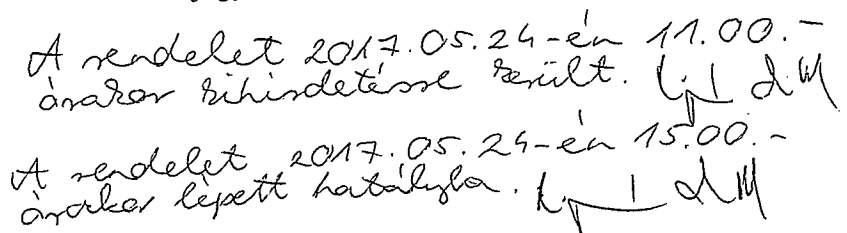 A rendelet 2017.05.24-én 11.00.-
órakor kihirdetésre került.
A rendelet 2017.05.24-én 15.00.-
órakor lépett hatályba.